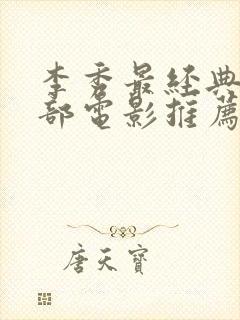 李秀最經典
部電影推薦
唐天寶